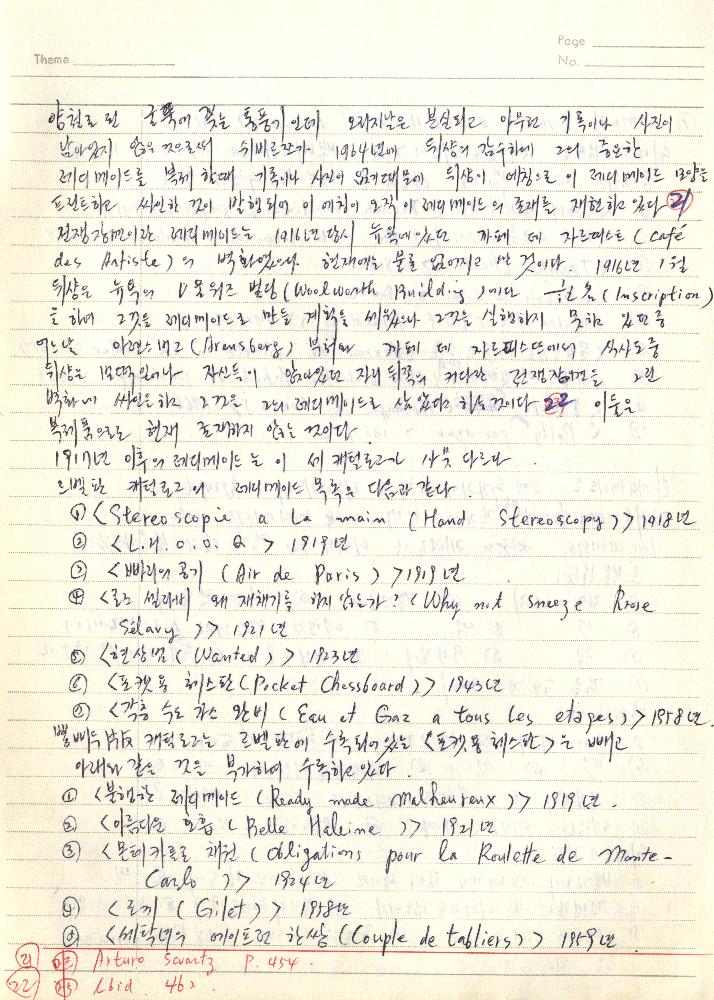 Page
Theme
No.
양철로 된 굴뚝에 꽂는 통풍기인데 오리지날은 분실되고 아무런 기록이나 사진이
남아있지 않은 것으로써 쉬바르쯔가 1964년에 뒤샹의 감수하에 그의 중요한
레디메이드를 복제할때 기록이나 사진이 없기때문에 뒤샹이 에칭으로 이 레디메이드 모양을
프린트하고 싸인한 것이 발행되어 이 에칭이 오직 이 레디메이드의 존재를 재현하고 있다 21
전쟁장면이란 레디메이드는 1916년 당시 뉴욕에 있었던 까페 데 자르띠스트 (Café
des Artiste)의 벽화였으나 현재에는 물론 없어지고 만 것이다. 1916년 1월
뒤샹은 뉴욕의 울워즈 빌딩 (Woolworth Building)에다 (Inscription)
을 하여 그것을 레디메이드로 만들 계획을 세웠으나 그것을 실행하지 못하고 있던중
어느날 아렌스버그 (Arensberg) 부처와 까페 데 자르띠스뜨에서 식사도중
뒤샹은 벌떡 일어나 자신들이 앉아있던 자리 뒤쪽의 커다란 전쟁장면을 그린
벽화에 싸인을 하고 그것을 그의 레디메이드로 삼았다고 하는것이다 22 이들은
복제품으로도 현재 존재하지 않는 것이다
1917년 이후의 레디메이드는 이 세 캐털로그가 사뭇 다르다.
르벨판 캐털로그의 레디메이드 목록은 다음과 같다.
① <Stereoscopie a La main (Hand Stereoscopy)> 1918년
② <L.H.O.O.Q> 1919년
③ <빠리의 공기 (Air de Paris)> 1919년
④ <로즈 셀라비 왜 재채기를 하지 않는가? (Why not sneeze Rrose
Sélavy)> 1921년
⑤ <현상범 (Wanted)> 1923년
⑥ <포켓용 체스판 (Pocket Chessboard)> 1943년
⑦ <각층 수도 가스 완비 (Eau et Gaz a tous Les etages)> 1958년.
뽕삐두版 캐털로그는 르벨판에 수록되어 있는 <포켓용 체스판>은 빼고
아래와 같은 것을 부가하여 수록하고 있다.
① <불행한 레디메이드 (Ready made Malheureux)> 1919년.
② <아름다운 호흡 (Belle Haleine)> 1921년
③ <몬테카를로 채권 (Obligations pour la Roulette de Monte-
Carlo)> 1924년
④ <조끼 (Gilet)> 1958년
⑤ <세탁녀의 에이프런 한쌍 (Couple de tabliers)> 1959년.
21 Arturo Scwartz P. 454.
22 Ibid. 462